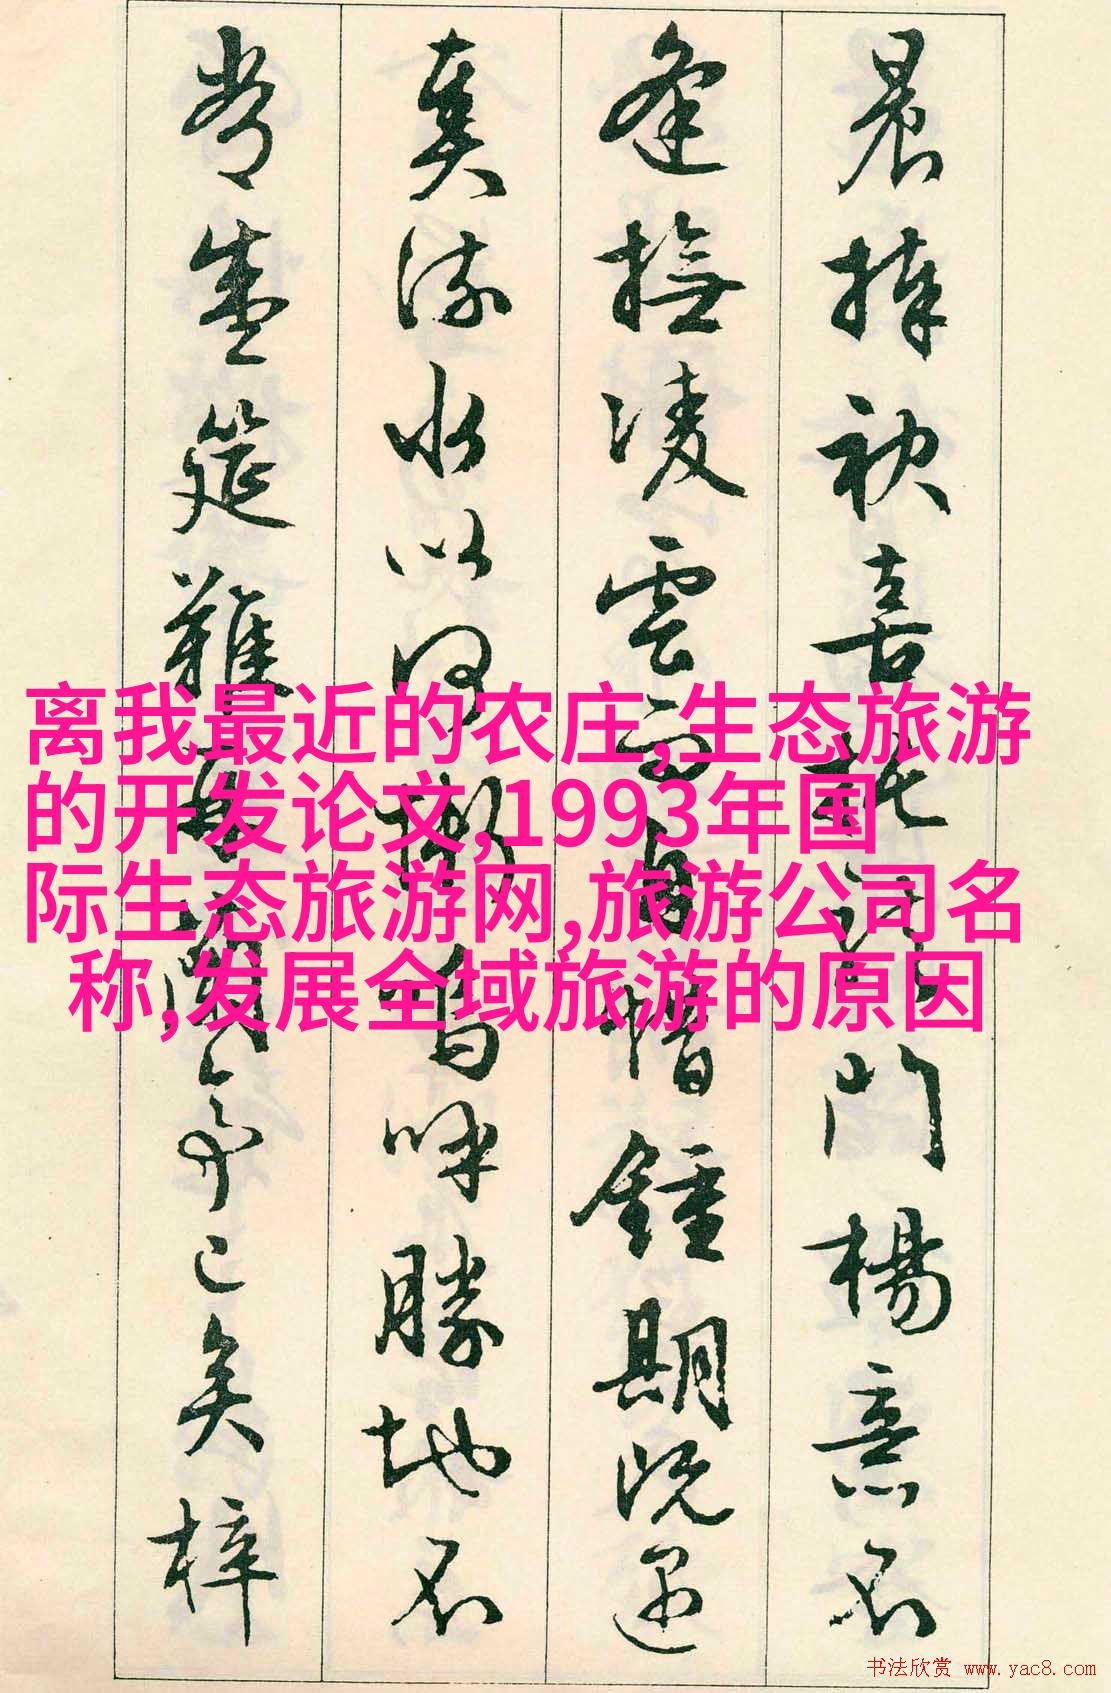 晨捧袂喜託龍門楊意不
逢撫凌雲而自惜鍾期既遇
奏流水以何慚嗚呼勝地不
常盛筵難再蘭亭已矣梓
离我最近的农庄,生态旅游
的开发论文,1993年国
际生态旅游网,旅游公司名
称,发展全域旅游的原因
书法欣赏 www.yac8.com